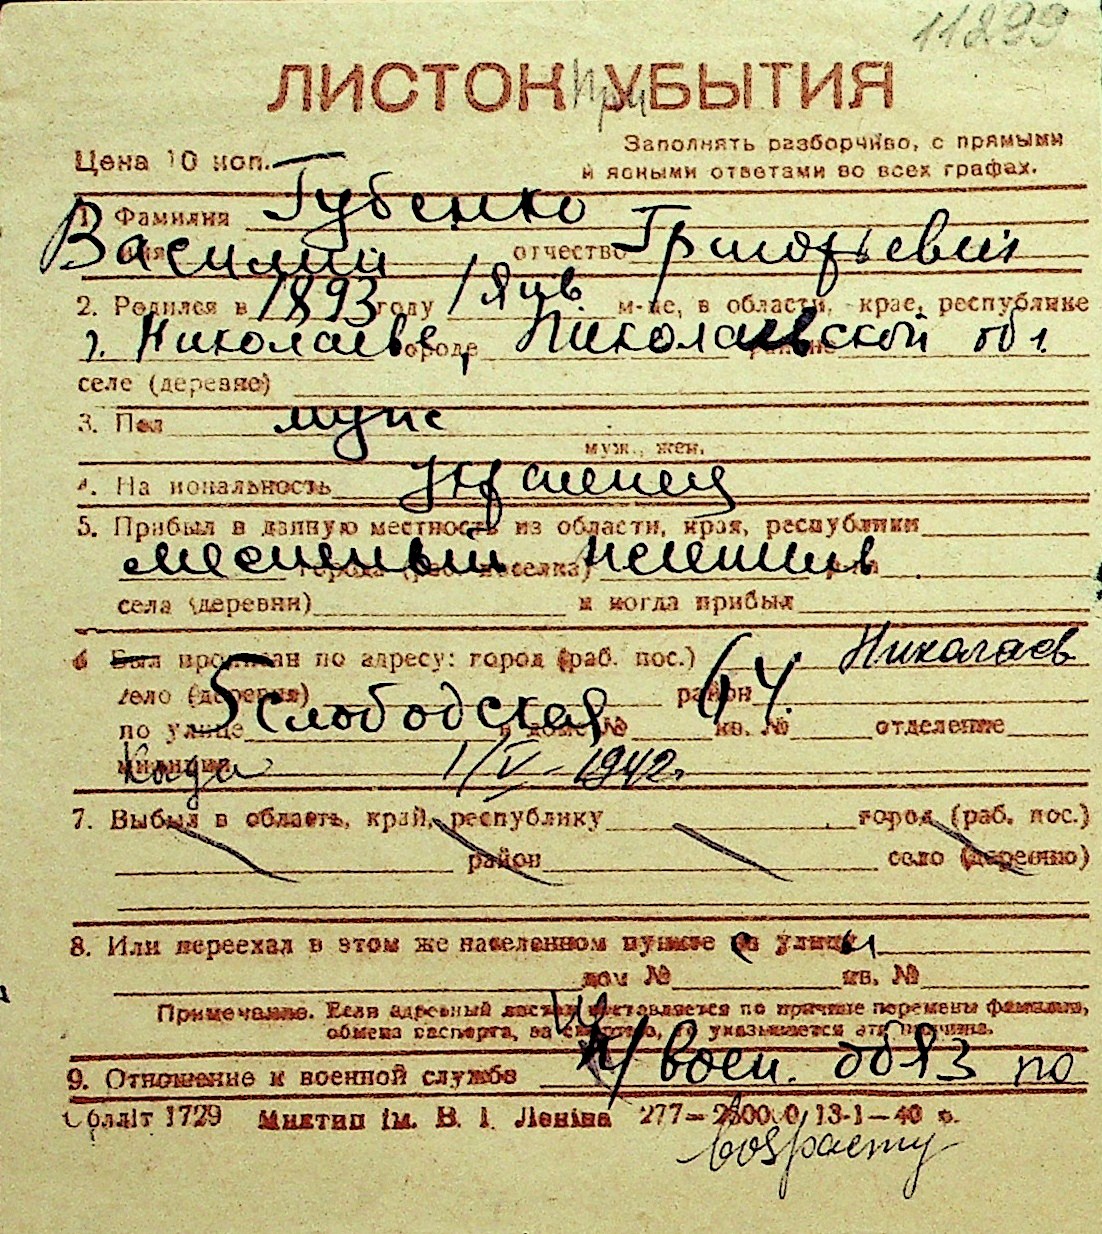 11299
ЛИСТОК При УБЫТИЯ
Цена 10 коп.
Заполнять разборчиво, с прямыми
и ясными ответами во всех графах.
1. Фамилия Губенко
имя Василий отчество Григорьевич
2. Родился в 1893 году 1 Янв. м-це, в области, крае, республике
г. Николаеве, городе Николаевской обл.
селе (деревне)
3. Пол муж
муж., жен.
4. Национальность Украинец
5. Прибыл в данную местность из области, края, республики
местный города (раб. поселка)
села (деревни) и когда прибыл
6 Был прописан по адресу: город (раб. пос.) Николаев
село (деревня) район
по улице 5 Слободская в доме № 64. кв. № отделение
милиции 1/V-1942.
7. Выбыл в область, край, республику город (раб. пос.)
район село (деревню)
8. Или переехал в этом же населенном пункте с улицы
дом № кв. №
Примечание. Если адресный листок составляется по причине перемены фамилии,
обмена паспорта, за смертью, то указывается эта причина.
9. Отношение к военной службе н/воен. обяз по
Облліт 1729 Миктип ім. В. І. Леніна 277— 13-1—40 р.
возрасту